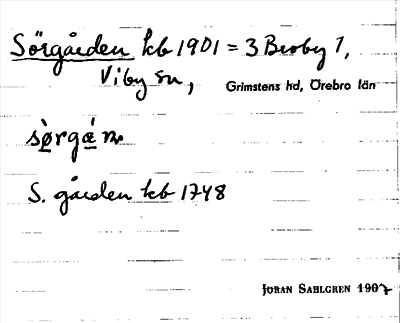 Sörgården kb 1901 = 3 Broby 1,
Viby sn, Grimstens hd, Örebro län
sò̤rgǽ̤n.
S. gården kb 1748
JÖRAN SAHLGREN 1907